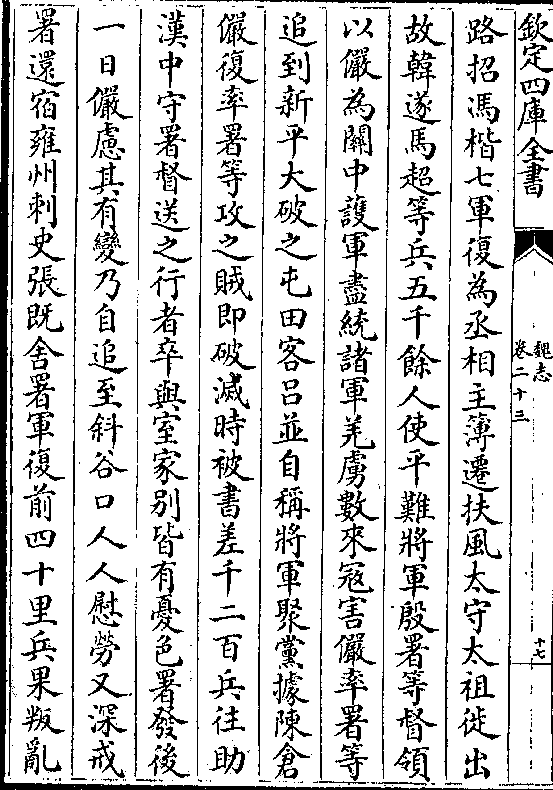 欽定四庫全書
魏志
卷二十三
十七
路招馮楷七軍復為丞相主簿遷扶風太守太祖徙出
故韓遂馬超等兵五千餘人使平難將軍殷署等督領
以儼為關中護軍盡統諸軍羌虜數來冦害儼率署等
追到新平大破之屯田客吕並自稱將軍聚黨據陳倉
儼復率署等攻之賊即破滅時被書差千二百兵往助
漢中守署督送之行者卒與室家别皆有憂色署發後
一日儼慮其有變乃自追至斜谷口人人慰勞又深戒
署還宿雍州刺史張既舍署軍復前四十里兵果叛亂